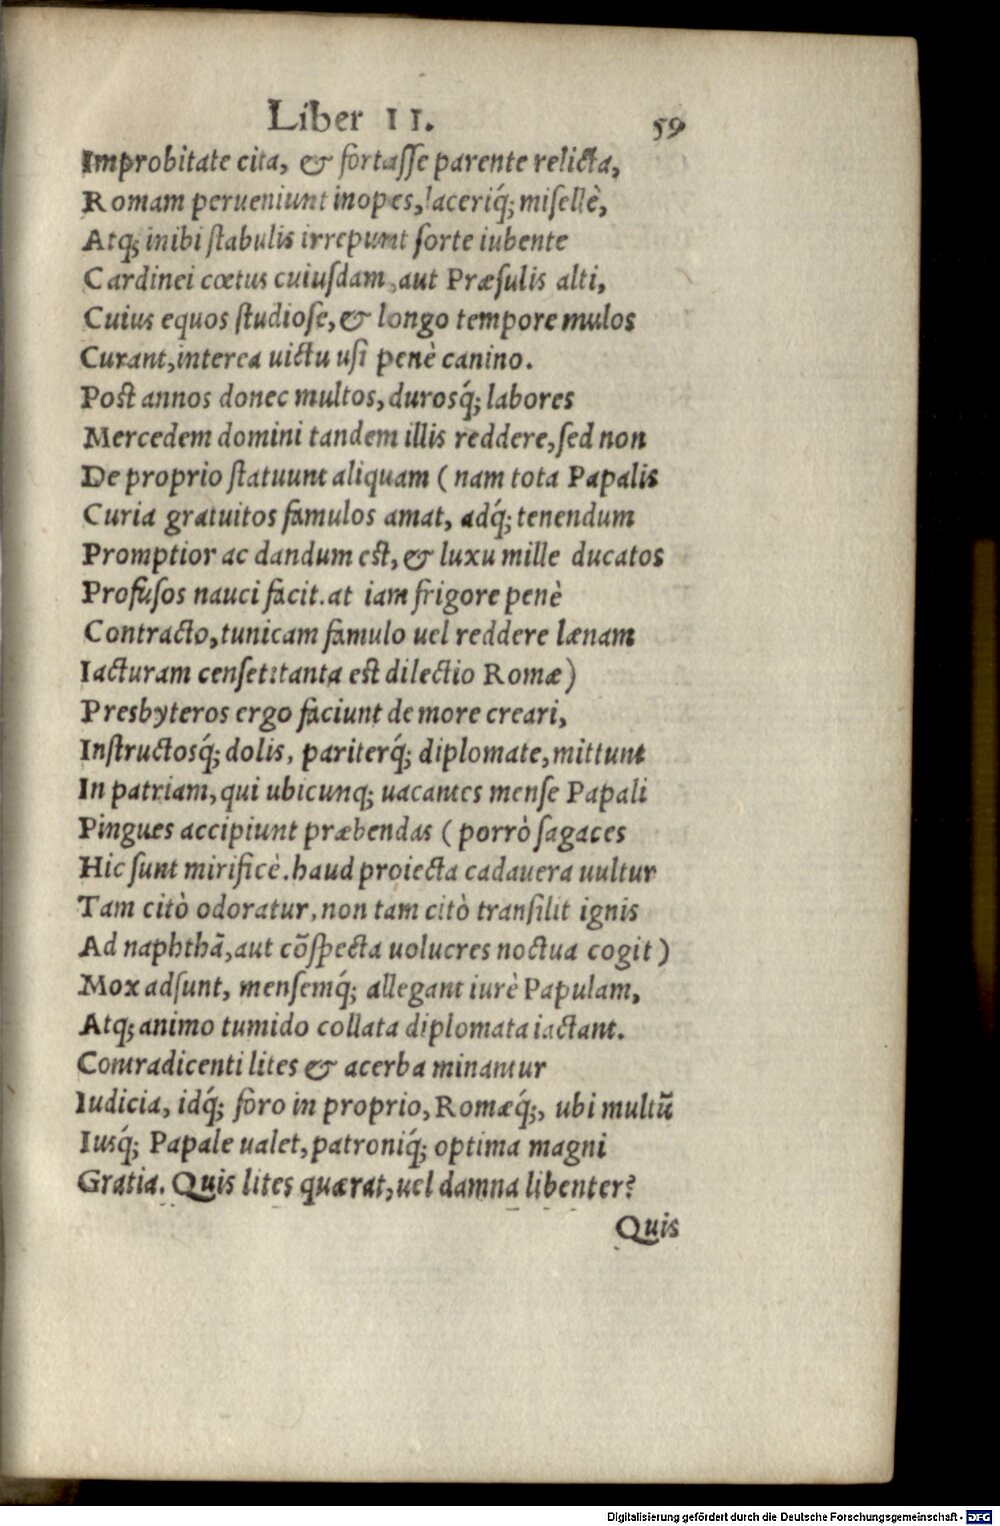 Liber II. 59
Improbitate cita, & fortaſſe parente relicta,
Romam perueniunt inopes, laceriq́; miſellè,
Atq; inibi ſtabulis irrepunt forte iubente
Cardinei cœtus cuiuſdam, aut Præſulis alti,
Cuius equos ſtudioſe, & longo tempore mulos
Curant, interea uictu uſi penè canino.
Post annos donec multos, durosq́; labores
Mercedem domini tandem illis reddere, ſed non
De proprio ſtatuunt aliquam (nam tota Papalis
Curia gratuitos famulos amat, adq́; tenendum
Promptior ac dandum est, & luxu mille ducatos
Profuſos nauci facit. at iam frigore penè
Contracto, tunicam famulo uel reddere lænam
Iacturam cenſet: tanta est dilectio Romæ)
Presbyteros ergo faciunt de more creari,
Inſtructosq́; dolis, pariterq́; diplomate, mittunt
In patriam, qui ubicunq; uacantes menſe Papali
Pingues accipiunt præbendas (porrò ſagaces
Hic ſunt mirificè. haud proiecta cadauera uultur
Tam citò odoratur, non tam citò tranſilit ignis
Ad naphthã, aut cõſpecta uolucres noctua cogit)
Mox adſunt, menſemq́; allegant iurè Papulam,
Atq; animo tumido collata diplomata iactant.
Contradicenti lites & acerba minantur
Iudicia, idq́; foro in proprio, Romæq́;, ubi multũ
Iusq́; Papale ualet, patroniq́; optima magni
Gratia. Quis lites quærat, uel damna libenter?
Quis
Digitalisierung gefördert durch die Deutsche Forschungsgemeinschaft - DFG